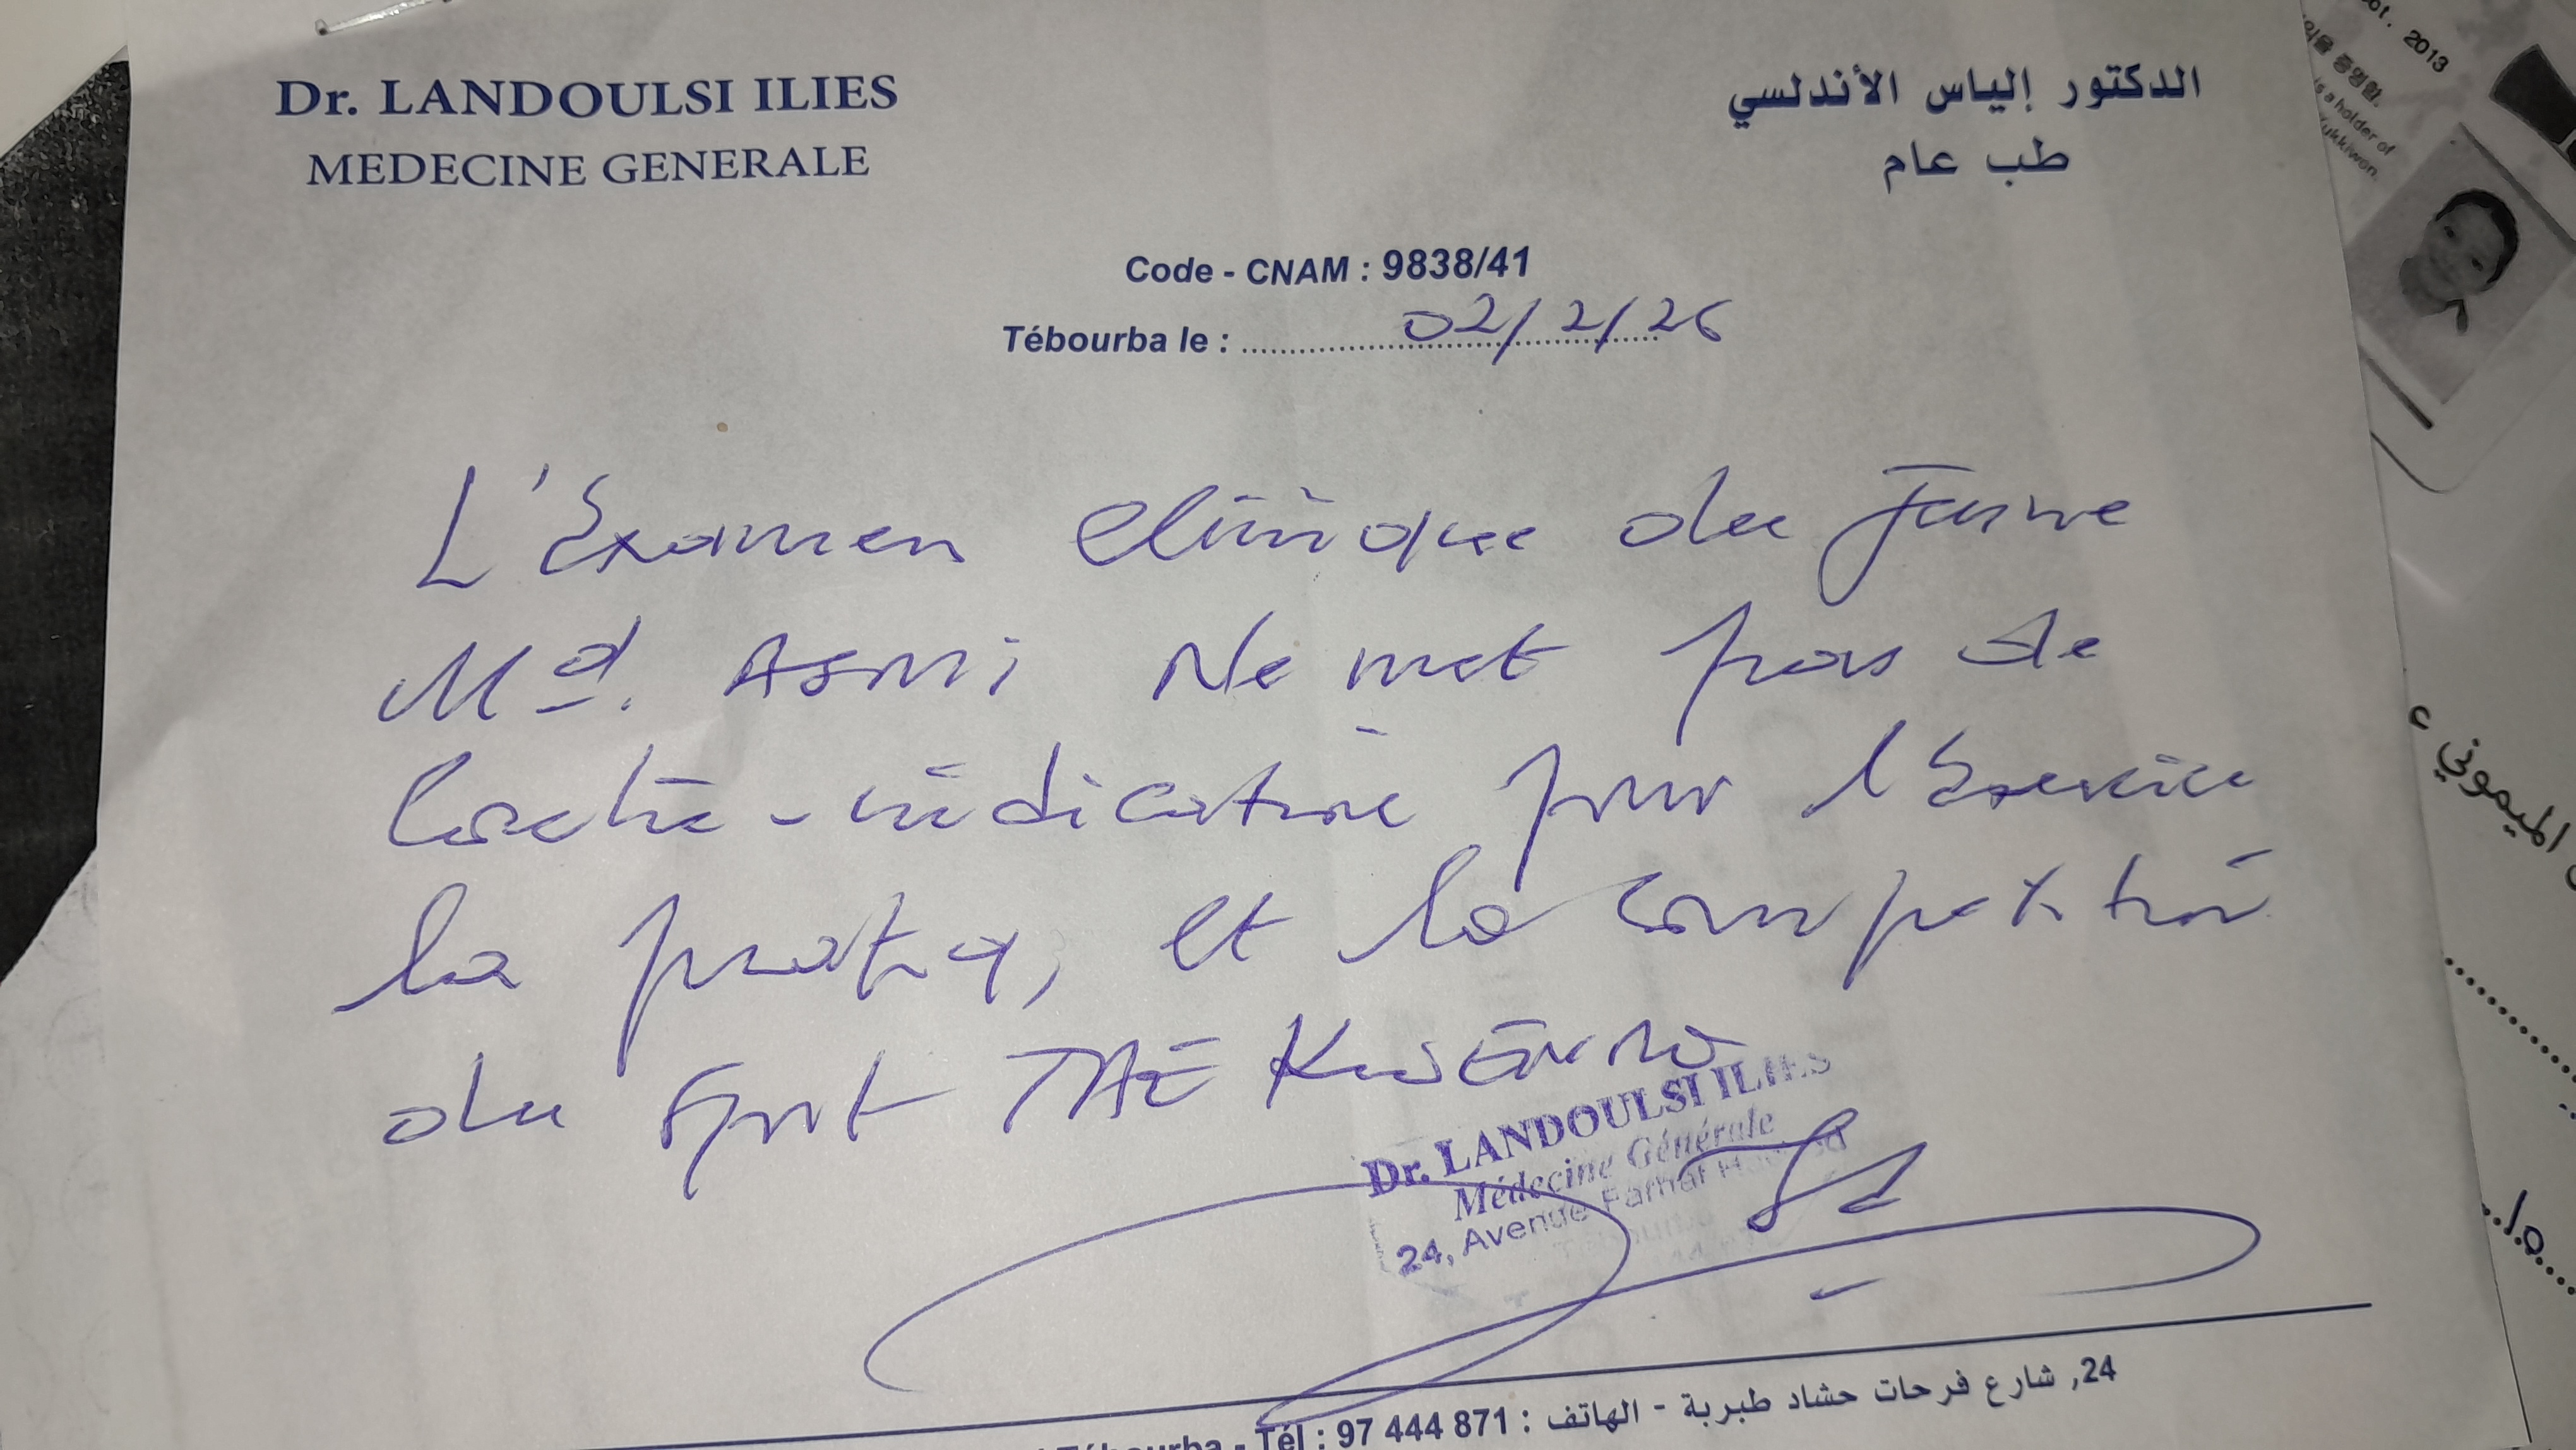 Dr. LANDOULSI ILIES
MEDECINE GENERALE
الدكتور إلياس الأندلسي
طب عام
Code - CNAM : 9838/41
Tébourba le : 02/2/26
L'Examen clinique du Jeune
Md. Asmi Ne met pas de
Contre-indication pour l'Exercice
la pratiq, et la competition
du sport TAE KWENDO
Dr. LANDOULSI ILIES
Médecine Générale
24, Avenue Farhat
24, شارع فرحات حشاد طبربة - الهاتف :
Tébourba - Tél : 97 444 871
ot. 2013
is a holder of
Kukkiwon.
الميموني